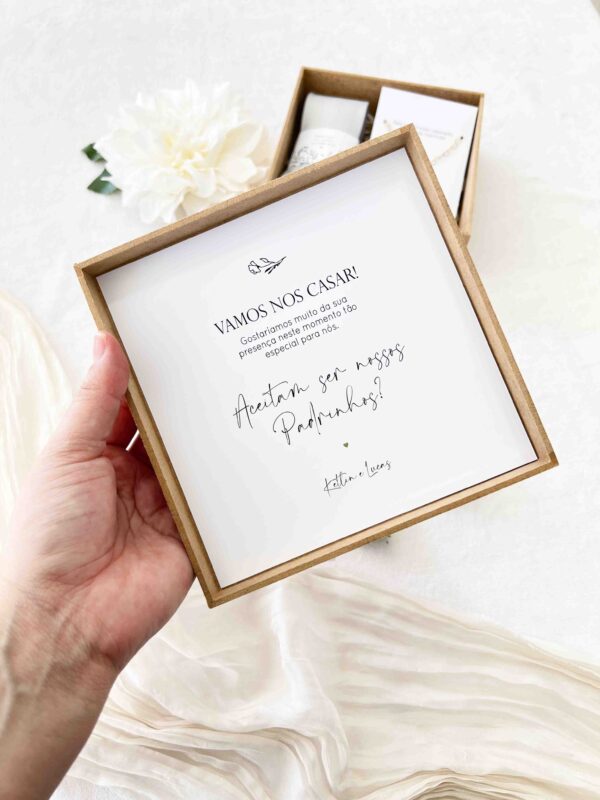 VAMOS NOS CASAR!
Gostaríamos muito da sua
presença neste momento tão
especial para nós.
Aceitam ser nossos
Padrinhos?
Kettlin e Lucas